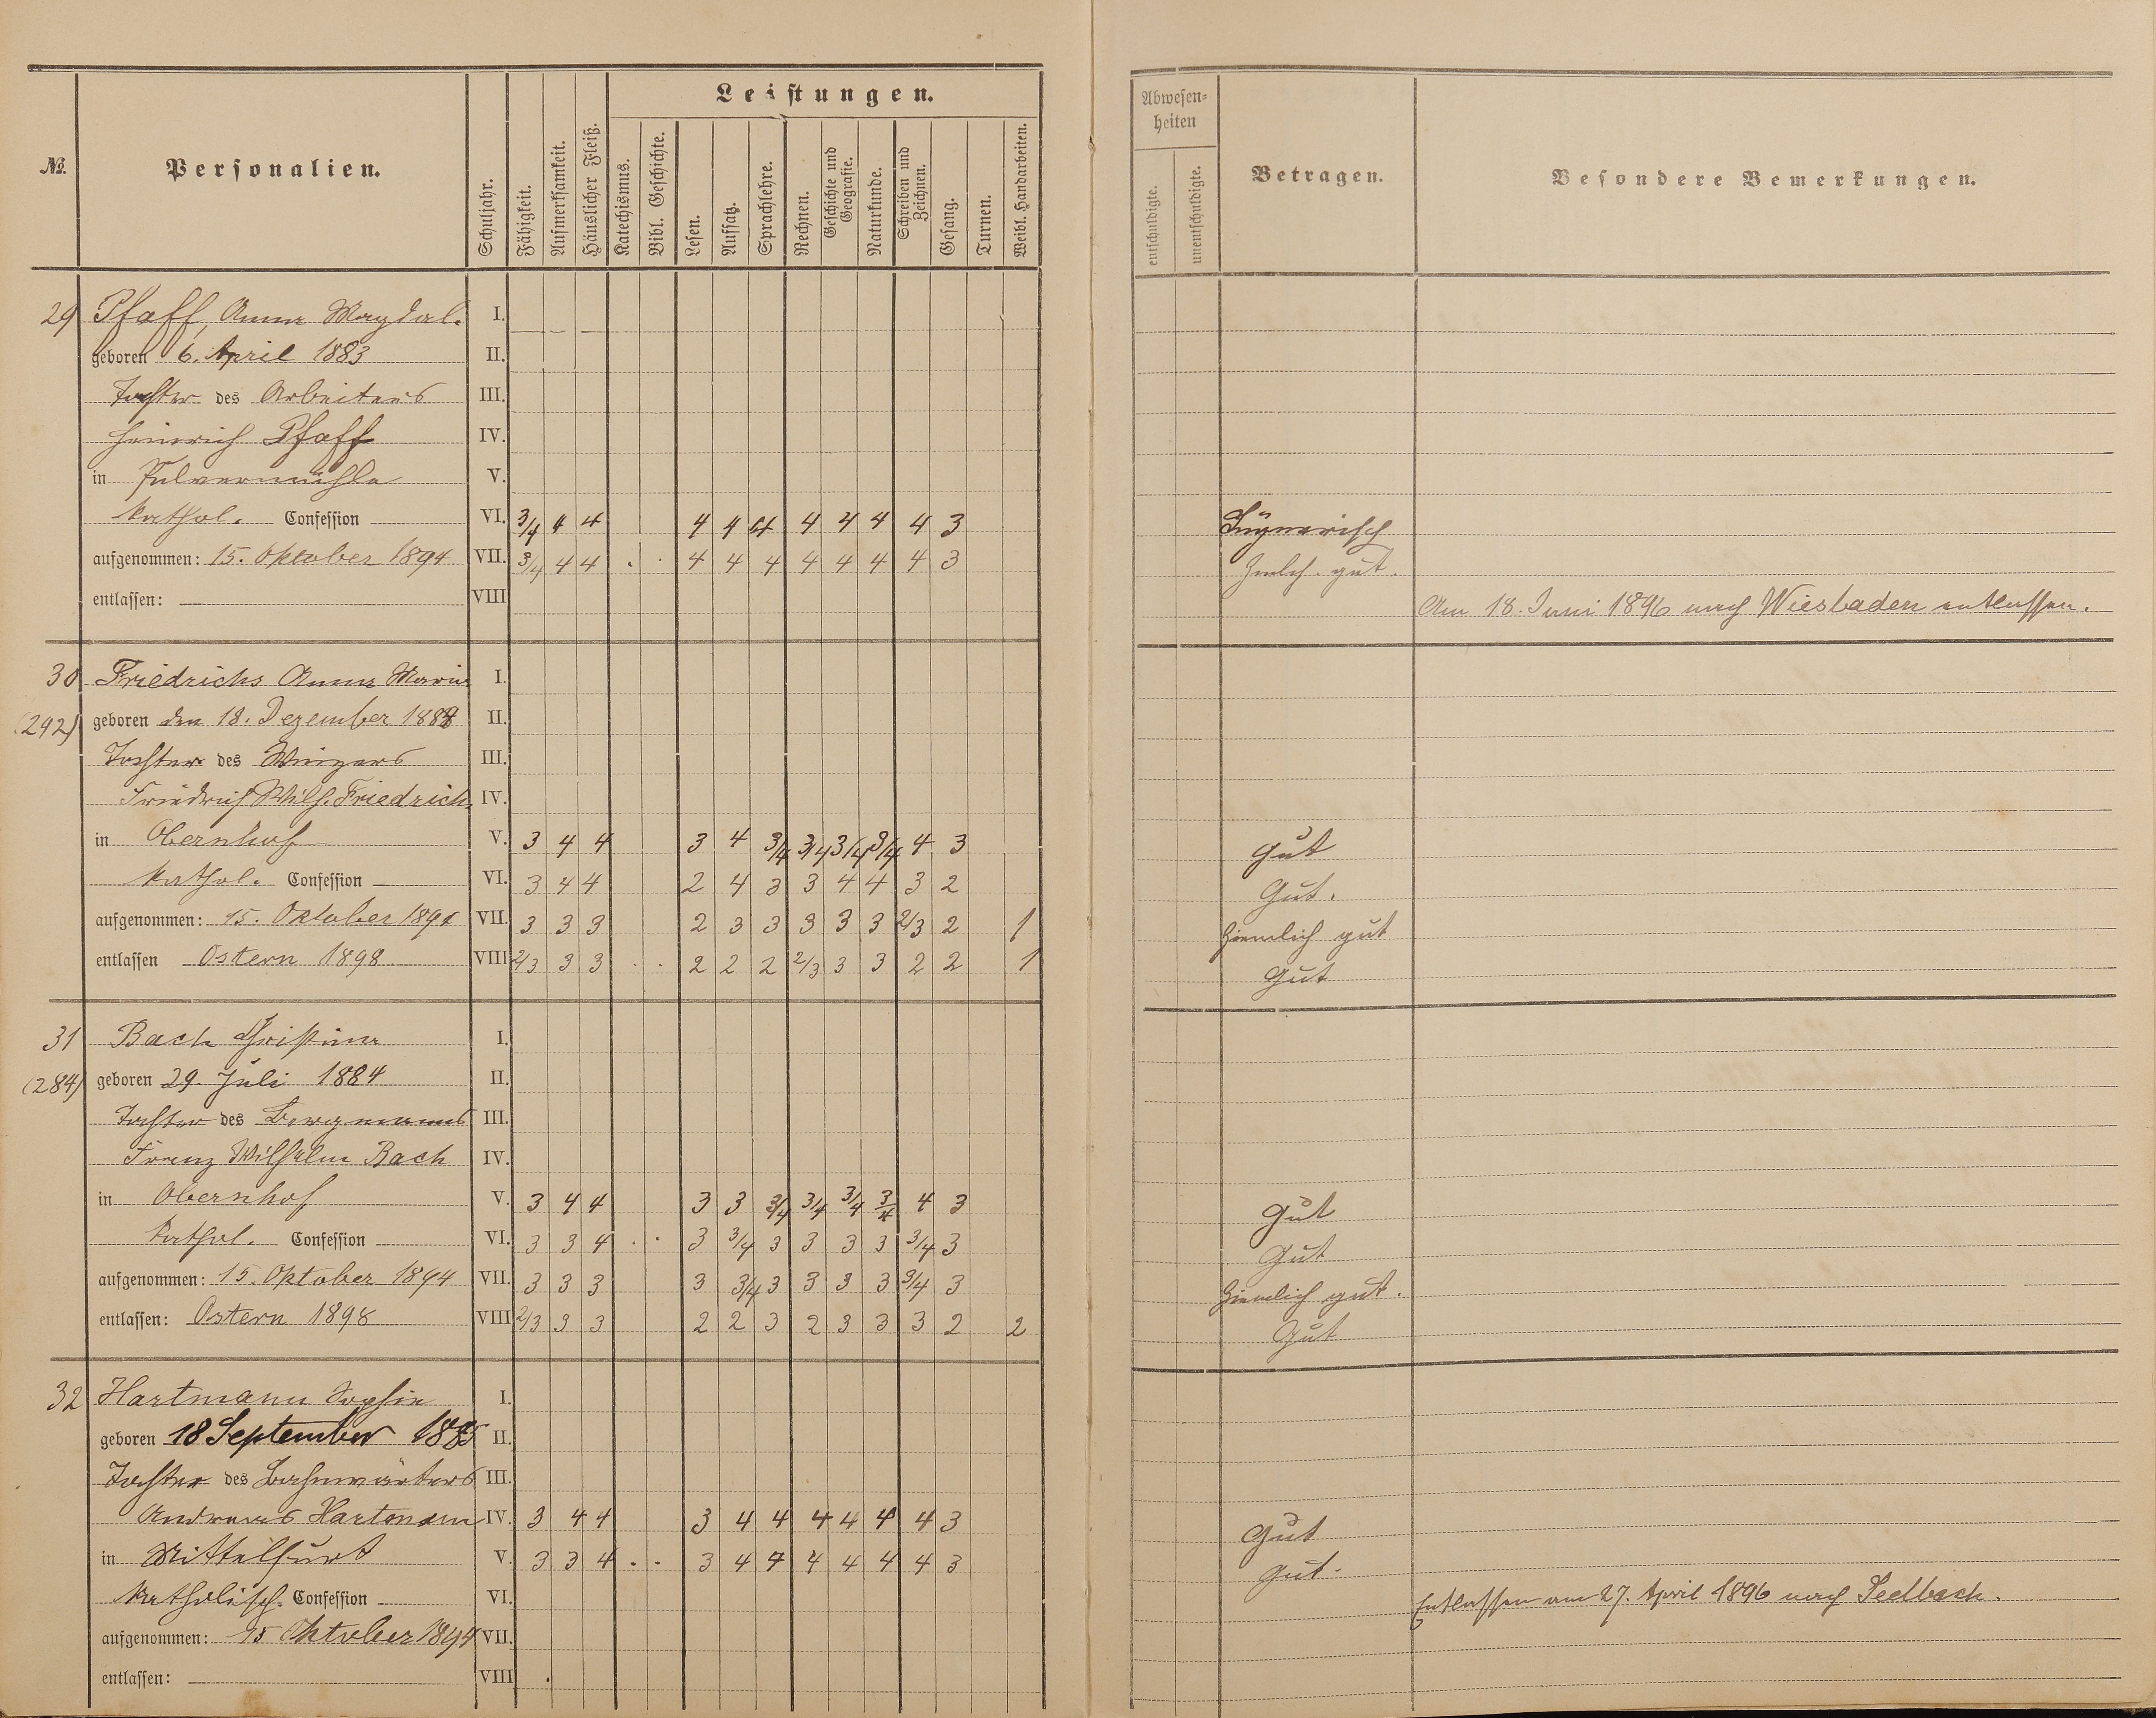 Leistungen.
№.
Personalien.
Schuljahr.
Fähigkeit.
Aufmerksamkeit.
Häuslicher Fleiß.
Katechismus.
Bibl. Geschichte.
Lesen.
Aufsatz.
Sprachlehre.
Rechnen.
Geschichte und Geografie.
Naturkunde.
Schreiben und Zeichnen.
Gesang.
Turnen.
Weibl. Handarbeiten.
Abwesen-
heiten
entschuldigte.
unentschuldigte.
Betragen.
Besondere Bemerkungen.
29 Pfaff, Anna Magdal. I.
geboren 6. April 1883 II.
Tochter des Arbeiters III.
Heinrich Pfaff IV.
in Pulvermühle V.
kathol. Confession VI. 3/4 4 4 4 4 4 4 4 4 4 3 Lügnerisch
aufgenommen: 15. Oktober 1894 VII. 3/4 4 4 . . 4 4 4 4 4 4 4 3 Zmlch. gut.
entlassen: VIII Am 18. Juni 1896 nach Wiesbaden entlassen.
30 Friedrichs Anna Maria I.
(292) geboren den 18. Dezember 188 II.
Tochter des Winzers III.
Friedrich Wilh. Friedrich IV.
in Obernhof V. 3 4 4 3 4 3/4 3/4 3/4 3/4 4 3 Gut
kathol. Confession VI. 3 4 4 2 4 3 3 4 4 3 2 Gut.
aufgenommen: 15. Oktober 189 VII. 3 3 3 2 3 3 3 3 3 2/3 2 1 Ziemlich gut
entlassen Ostern 1898 VIII 2/3 3 3 . . 2 2 2 2/3 3 3 2 2 1 Gut
31 Bach Christina I.
(284) geboren 29. Juli 1884 II.
Tochter des Bergmanns III.
Franz Wilhelm Bach IV.
in Obernhof V. 3 4 4 3 3 3/4 3/4 3/4 3/4 4 3 Gut
kathol. Confession VI. 3 3 4 . . 3 3/4 3 3 3 3 3/4 3 Gut
aufgenommen: 15. Oktober 1894 VII. 3 3 3 3 3/4 3 3 3 3 3/4 3 Ziemlich gut.
entlassen: Ostern 1898 VIII 2/3 3 3 2 2 3 2 3 3 3 2 2 Gut
32 Hartmann Sophie I.
geboren 18 September 1885 II.
Tochter des Bahnwärters III.
Andreas Hartmann IV. 3 4 4 3 4 4 4 4 4 4 3 Gut
in Mittelfurt V. 3 3 4 . . 3 4 4 4 4 4 4 3 gut.
Katholisch. Confession VI. Entlassen am 27. April 1896 nach Seelbach.
aufgenommen: 15 Oktober 1894 VII.
entlassen: VIII